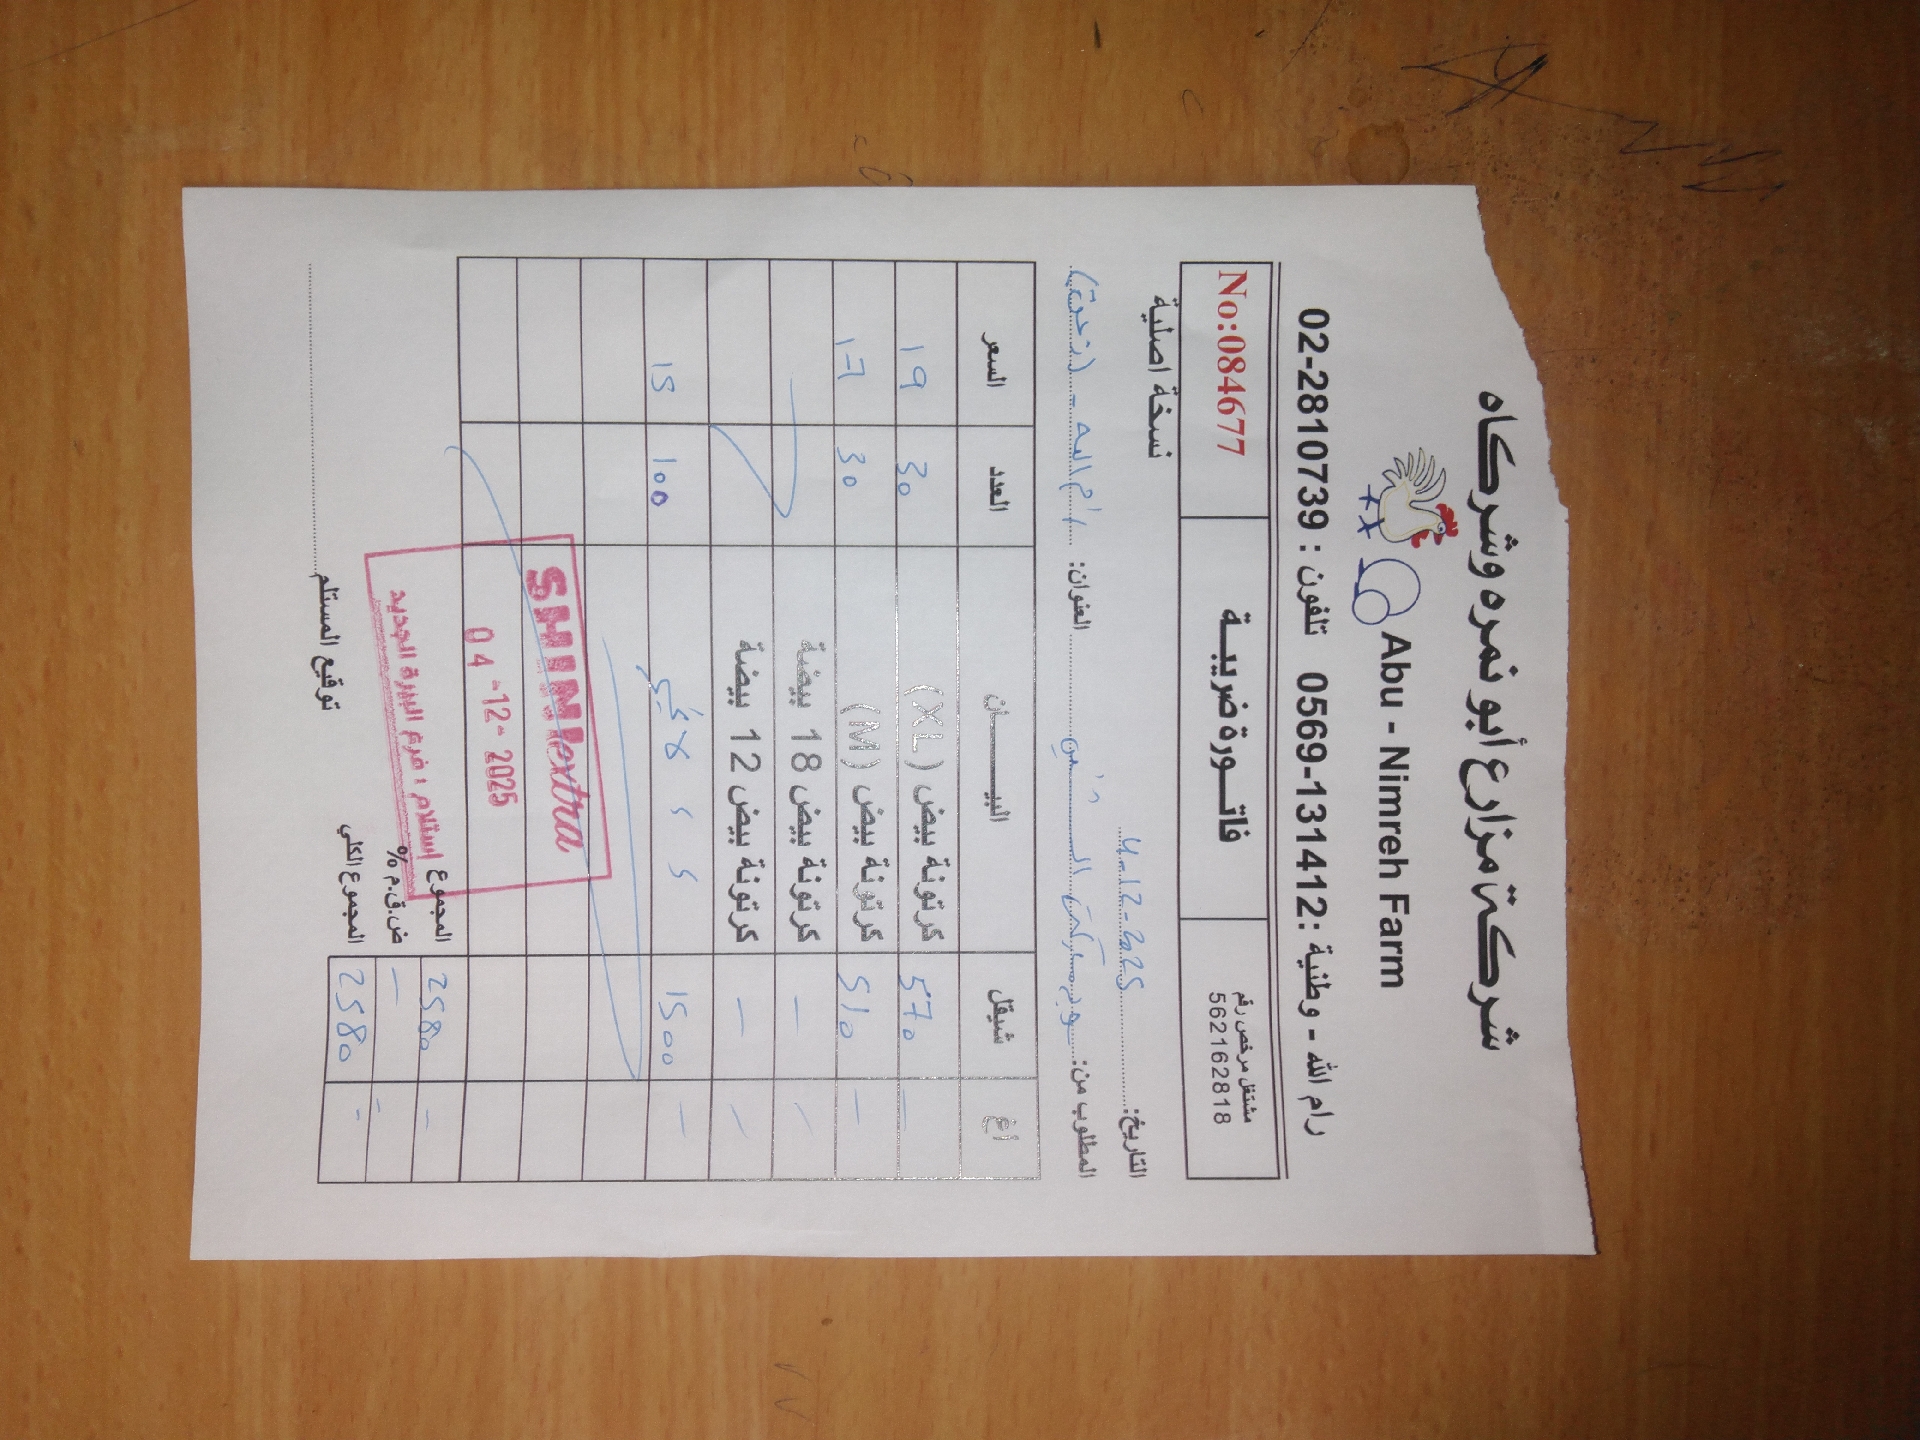 شركة مزارع أبو نمره وشركاه
Abu - Nimreh Farm
رام الله - وطنية : 0569-131412 تلفون : 02-2810739
مشتغل مرخص رقم
562162818
فاتـــورة ضريبـــة
No:084677
نسخة اصلية
التاريخ: 4-12-2025
المطلوب من: العنوان: رام الله -
اغ شيقل البيـــــــان العدد السعر
- 570 كرتونة بيض (XL) 30 19
- 510 كرتونة بيض (M) 30 17
- - كرتونة بيض 18 بيضة
- - كرتونة بيض 12 بيضة
- 1500 100 15
SHINI extra
04-12-2025
استلام ، فرع البيرة الجديد
المجموع 2580 -
ض.ق.م % - -
المجموع الكلي 2580 -
توقيع المستلم